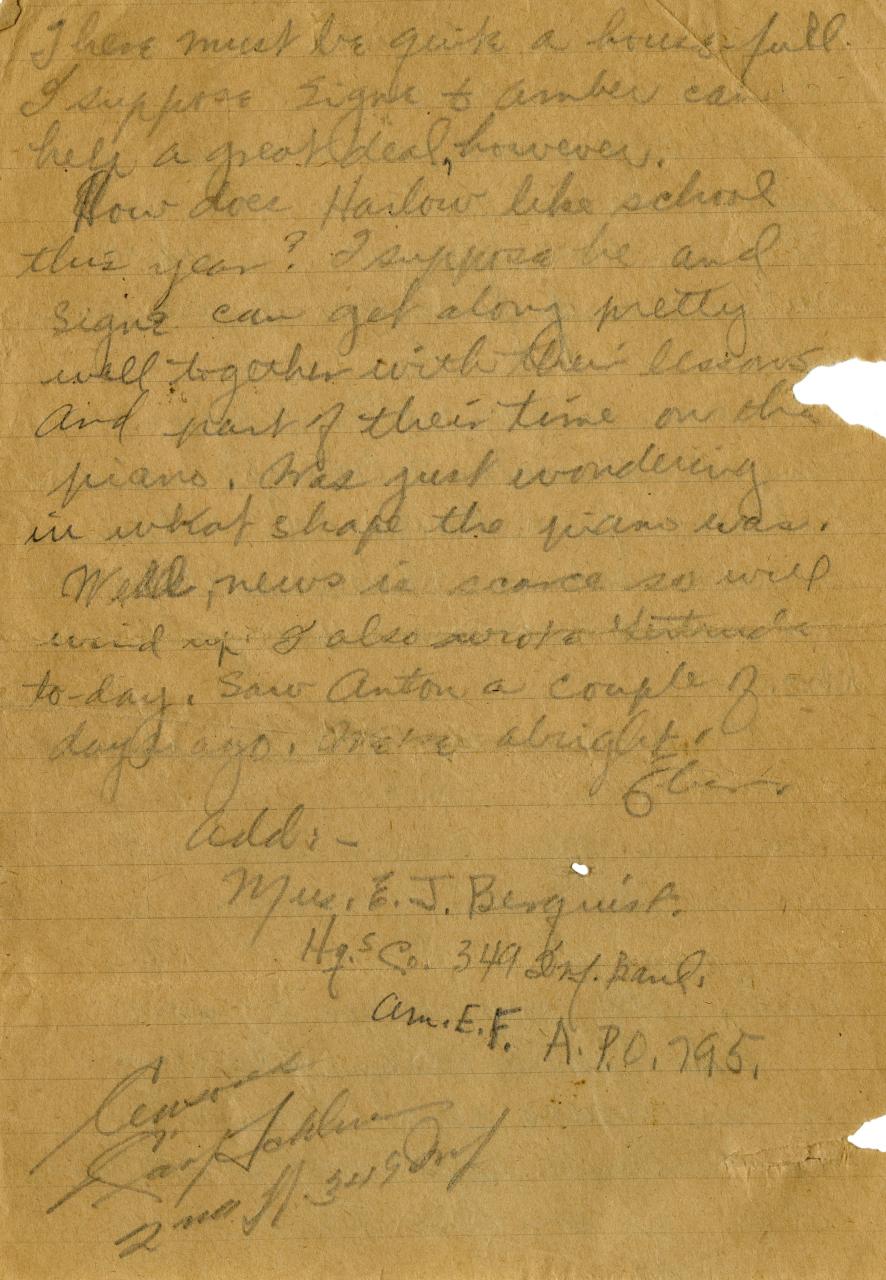 There must be quite a house full
I suppose Signe & Amber can
help a great deal, however.
How does Harlow like school
this year? I suppose he and
Signe can get along pretty
well together with their lessons
And part of their time on the
piano. Was just wondering
in what shape the piano was.
Well, news is scarce so will
wind up I also wrote Gertrude
to-day. Saw Anton a couple of
days ago. alright.
Add:-
Mus. E. J. Berquist.
Hq.s Co. 349 Inf. Band.
Am. E. F. A. P. O. 795.
Censored
2nd Lt. 349 Inf